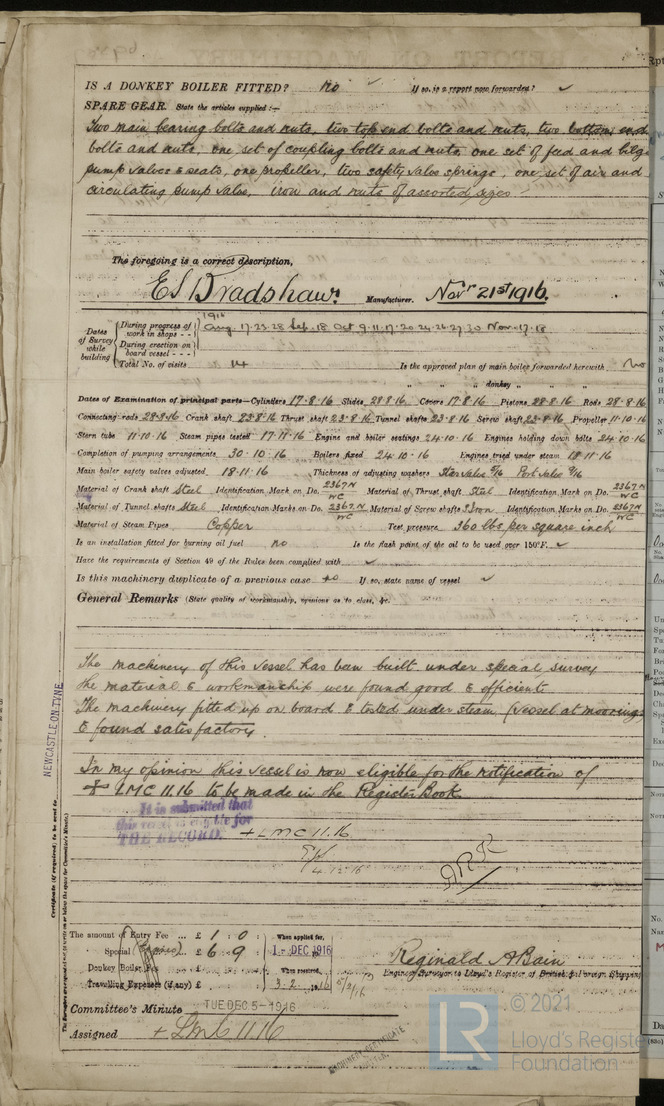 IS A DONKEY BOILER FITTED? No If so, is a report now forwarded? ✓
SPARE GEAR. State the articles supplied:—
Two main bearing bolts and nuts, two top end bolts and nuts, two bottom end
bolts and nuts, one set of coupling bolts and nuts, one set of feed and bilge
pump valves & seats, one propeller, two safety valve springs, one set of air and
circulating pump valves, iron and nuts of assorted sizes.
The foregoing is a correct description,
E S Bradshaw. Manufacturer. Novr 21st 1916.
Dates of Survey while building
During progress of work in shops - - 1916 Aug. 17. 23. 28 Sep. 18 Oct 9. 11. 17. 20 24. 26. 27. 30 Nov. 17. 18
During erection on board vessel - - -
Total No. of visits 14 Is the approved plan of main boiler forwarded herewith No
" " " donkey " " "
Dates of Examination of principal parts—Cylinders 17.8.16 Slides 28.8.16 Covers 17.8.16 Pistons 28.8.16 Rods 28.8.16
Connecting rods 28.8.16 Crank shaft 23.8.16 Thrust shaft 23.8.16 Tunnel shafts 23.8.16 Screw shaft 23.8.16 Propeller 11.10.16
Stern tube 11.10.16 Steam pipes tested 17.11.16 Engine and boiler seatings 24.10.16 Engines holding down bolts 24.10.16
Completion of pumping arrangements 30.10.16 Boilers fixed 24.10.16 Engines tried under steam 18.11.16
Main boiler safety valves adjusted 18.11.16 Thickness of adjusting washers Star valve Port valve
Material of Crank shaft Steel Identification Mark on Do. 2367 N WC Material of Thrust shaft Steel Identification Mark on Do. 2367 N WC
Material of Tunnel shafts Steel Identification Marks on Do. 2367 N WC Material of Screw shafts Identification Marks on Do. 2367 N WC
Material of Steam Pipes Copper Test pressure 360 lbs per square inch
Is an installation fitted for burning oil fuel no Is the flash point of the oil to be used over 150°F. ✓
Have the requirements of Section 49 of the Rules been complied with ✓
Is this machinery duplicate of a previous case no If so, state name of vessel ✓
General Remarks (State quality of workmanship, opinions as to class, &c.
The machinery of this vessel has been built under special survey
the material & workmanship were found good & efficient.
The machinery fitted up on board & tested under steam (vessel at moorings
& found satisfactory.
In my opinion this vessel is now eligible for the notification of
+ LMC 11.16 to be made in the Register Book.
It is submitted that
this vessel is eligible for
THE RECORD. + LMC 11.16
4.12.16
NEWCASTLE-ON-TYNE
Certificate (if required) to be sent to
The Surveyors are requested not to write on or below the space for Committee's Minute.
The amount of Entry Fee ... £ 1 : 0 : When applied for, 1 - DEC 1916
Special ... £ 6 . 9
Donkey Boiler Fee ... £ When received,
Travelling Expenses (if any) £ 3.2.1916
Reginald A Bain
Engineer Surveyor to Lloyd's Register of British & Foreign Shipping
Committee's Minute TUE. DEC. 5 - 1916
Assigned + LMC 11.16
MACHINERY CERTIFICATE
© 2021
LR
Lloyd's Register
Foundation